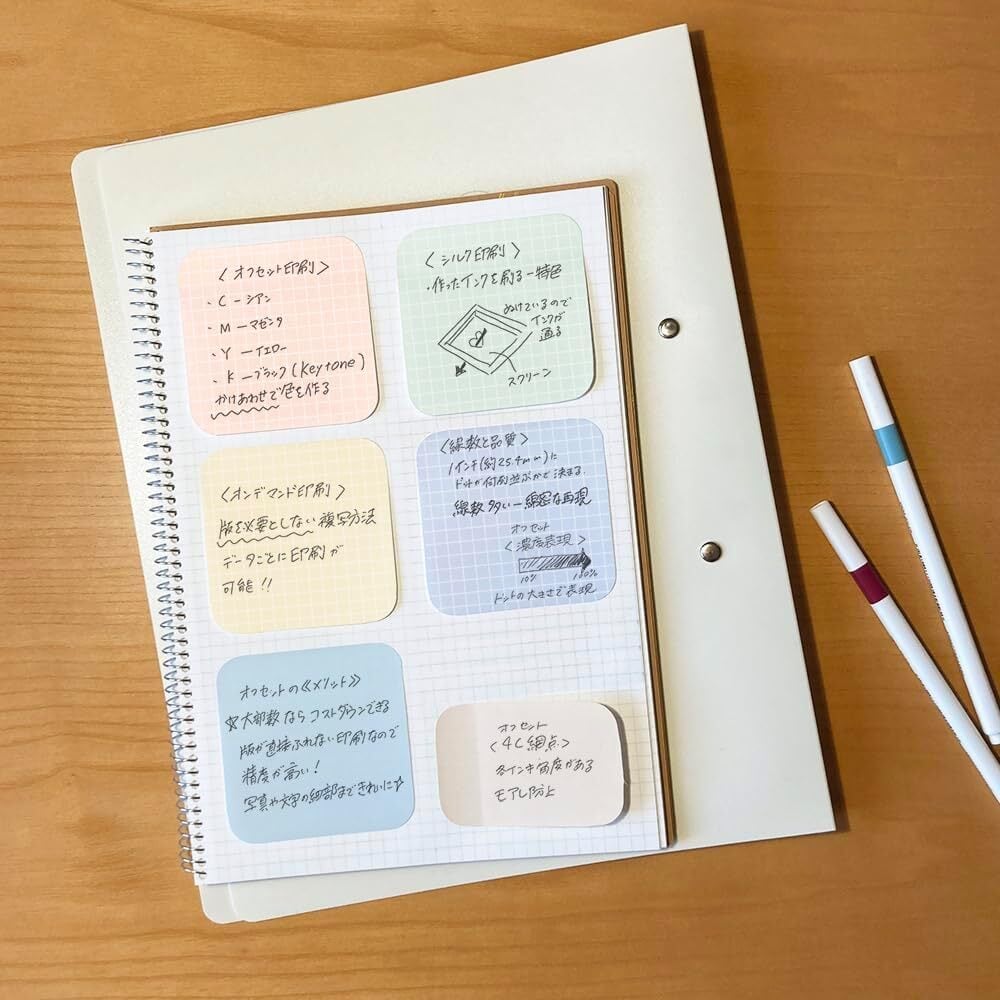 〈オフセット印刷〉
・C ーシアン
・M ーマゼンタ
・Y ーイエロー
・K ーブラック(Keytone)
かけあわせで色を作る
〈シルク印刷〉
・作ったインクを刷るー特色
ぬけているので
インクが
通る
スクリーン
〈オンデマンド印刷〉
版を必要としない複写方法
データごとに印刷が
可能!!
〈線数と品質〉
1インチ(約25.4mm)に
ドットが何列並ぶかで決まる
線数多いー綿密な再現
オフセット
〈濃度表現〉
10% 100%
ドットの大きさで表現
オフセットの《メリット》
☆大部数ならコストダウンできる
版が直接ふれない印刷なので
精度が高い!
写真や文字の細部まできれいに☆
オフセット
〈4C網点〉
各インキ角度がある
モアレ防止